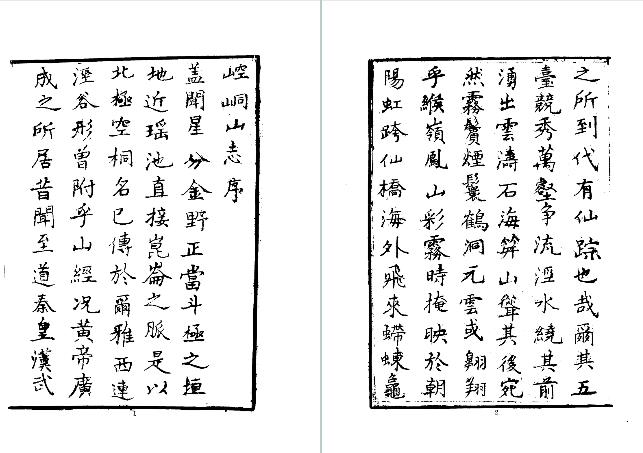 崆峒山志序
盖聞星分金野正當斗極之垣
地近瑶池直接崑崙之脈是以
北極空桐名已傳於爾雅西連
涇谷形曾附乎山經况黄帝廣
成之所居昔聞至道秦皇漢武
1
之所到代有仙踪也哉爾其五
臺競秀萬壑争流涇水繞其前
湧出雲濤石海笄山聳其後宛
然霧鬢煙鬟鶴洞元雲或翱翔
乎緱嶺鳳山彩霧時掩映於朝
陽虹跨仙橋海外飛來螮蝀龜
2